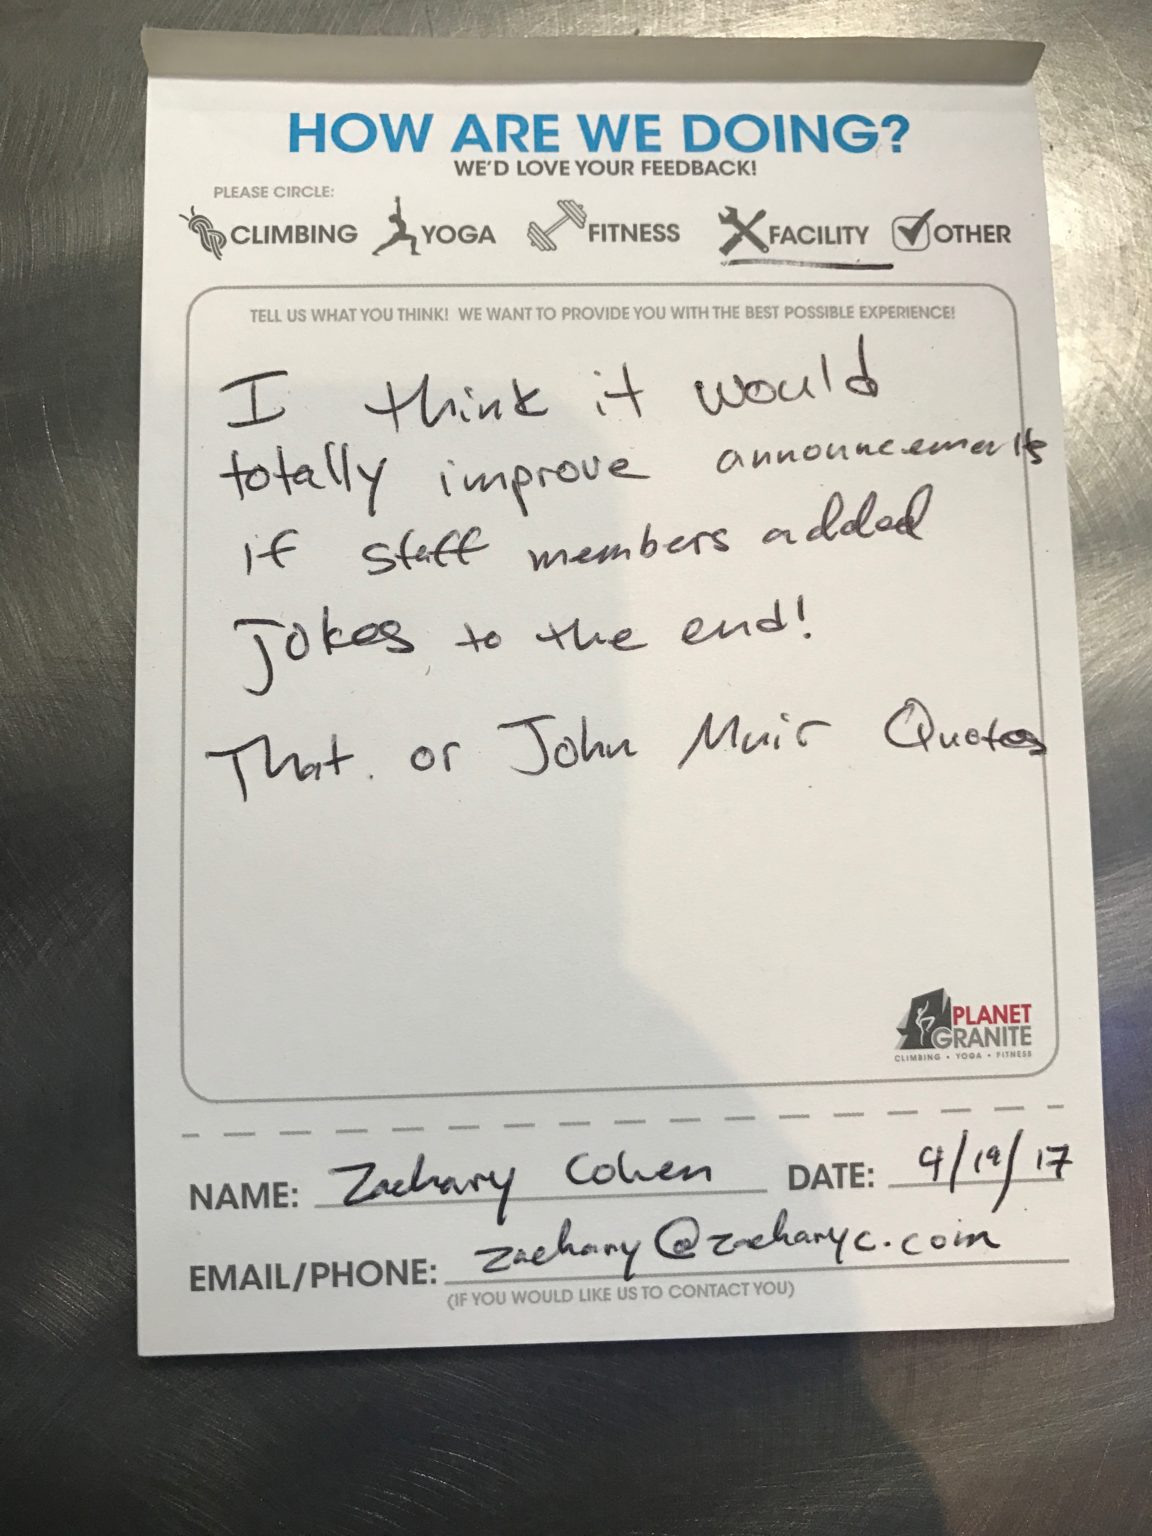 HOW ARE WE DOING?
WE'D LOVE YOUR FEEDBACK!
PLEASE CIRCLE:
CLIMBING YOGA FITNESS FACILITY OTHER
TELL US WHAT YOU THINK! WE WANT TO PROVIDE YOU WITH THE BEST POSSIBLE EXPERIENCE!
I think it would
totally improve announcements
if staff members added
jokes to the end!
That. or John Muir Quotes
PLANET
GRANITE
CLIMBING • YOGA • FITNESS
NAME: Zachary Cohen DATE: 9/19/17
EMAIL/PHONE: zachary@zacharyc.com
(IF YOU WOULD LIKE US TO CONTACT YOU)